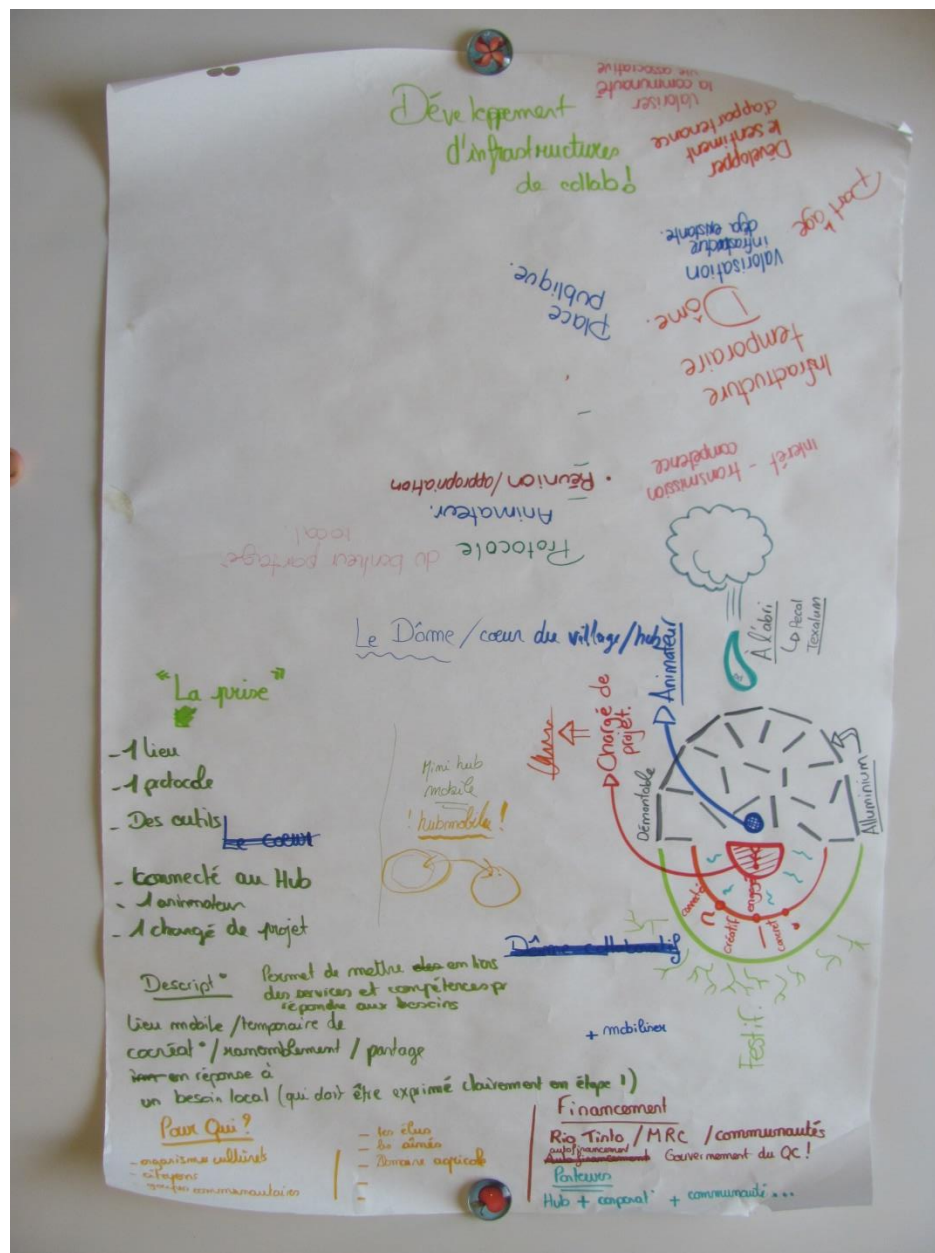 Développement
d'infrastructures
de collab !
Valoriser
la communauté
vie associative
Développer
le sentiment
d'appartenance
Partage
Valorisation
infrastructure
déja existante.
Dôme.
Place
publique.
Infractucture
temporaire
interêt - transmission
compétence
• Réunion/appropriation
Animateur.
Protocole
du bonheur partagé
local
Le Dôme / cœur du village/hub
"La prise"
- 1 lieu
- 1 protocole
- Des outils
Le Coeur
- connecté au Hub
- 1 animateur
- 1 chargé de projet
Mini hub
mobile
! hubmobile !
Chargé de
projet.
Animateur
À l'abri
Texalum
Démontable
Alluminium
créatif
concret
engagé
Festif.
Dôme collaboratif
+ mobilier
Descript°
Permet de mettre des en liens
des services et compétences pr
répondre aux besoins
Lieu mobile/temporaire de
cocréat°/rassemblement / partage
en réponse à
un besoin local (qui doit être exprimé clairement en étape 1)
Pour Qui ?
- organisme culturels
- citoyens
communautaires
- Les élus
- Les aînés
- Domaine agricole
Financement
Rio Tinto / MRC / communautés
autofinancement
Autofinancement Gouvernement du QC !
Porteurs
Hub + corporat° + communauté ...